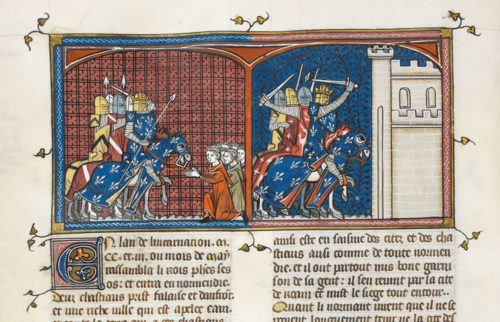 EN lan de lincarnation. m.
CC. et .iii. ou mois de may
rassambla li rois phes ses
os: et entra en normendie.
Deux chastiaus prist falaise et danfrot
et une riche ville qui est apelee
ainsi este en saisine des citez et des cha
stiaus ausi comme de toute normen
die. et il ont partout mis bone garni
son de sa gent: il sen revint par la cite
de mist le siege tout entour.
Quant li normant virent que il ne se
longuement tenir que la cite des